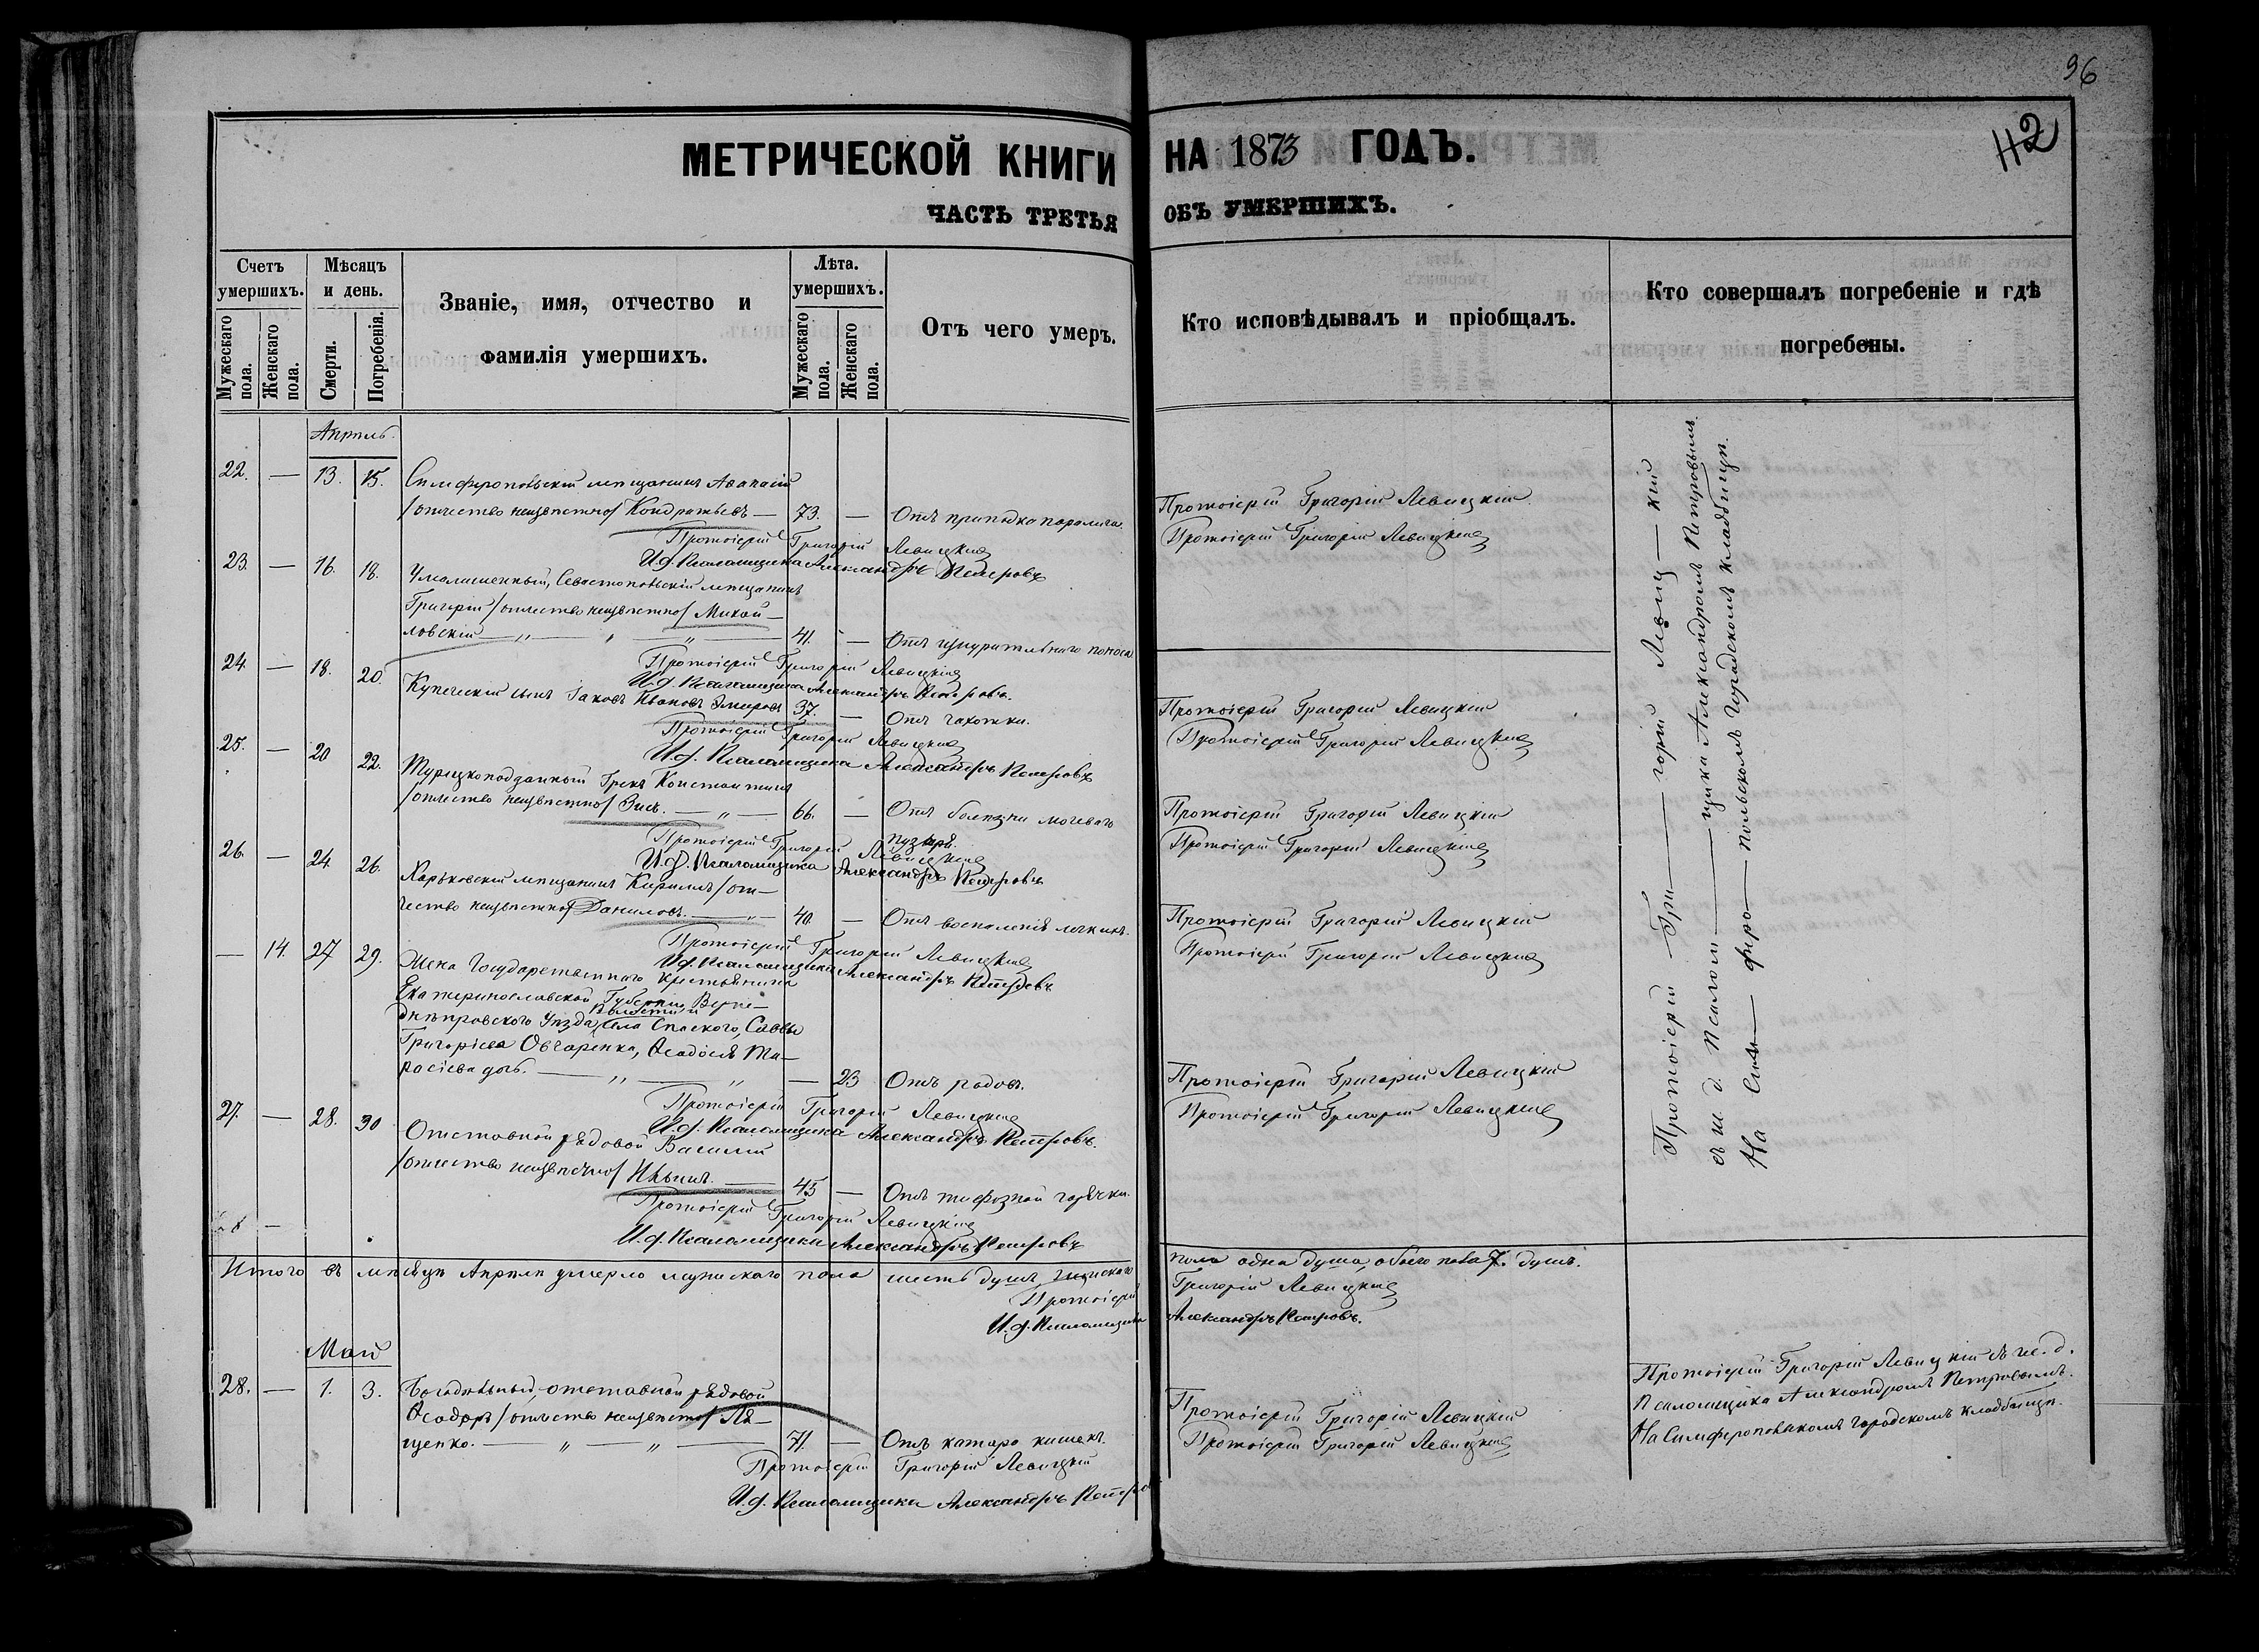 96
112
МЕТРИЧЕСКОЙ КНИГИ НА 1873 ГОДЪ.
ЧАСТЬ ТРЕТЬЯ ОБЪ УМЕРШИХЪ.
Счетъ умершихъ.
Мужескаго пола.
Женскаго пола.
Мѣсяцъ и день.
Смерти.
Погребенія.
Званіе, имя, отчество и
фамилія умершихъ.
Лѣта. умершихъ.
Мужескаго пола.
Женскаго пола.
Отъ чего умеръ.
Кто исповѣдывалъ и пріобщалъ.
Кто совершалъ погребеніе и гдѣ
погребены.
Апрѣль.
22. — 13. 15. Симферопольскій мѣщанинъ Аѳанасій
/отчество неизвѣстно/ Кондратьевъ — 73. — Отъ припадка паралича.
Протоіерей Григорій Левицкій
Протоіерей Григорій Левицкій
Протоіерей Григорій Левицкій
И.д. Псаломщика Александръ Петровъ
23. — 16. 18. Умалишенный, Севастопольскій мѣщанинъ
Григорій /отчество неизвѣстно/ Михай-
ловскій — 41. — Отъ изнурительнаго поноса
Протоіерей Григорій Левицкій
И.д. Псаломщика Александръ Петровъ.
24. — 18. 20. Купеческій сынъ Іаковъ Ивановъ 37. — Отъ чахотки.
Протоіерей Григорій Левицкій
Протоіерей Григорій Левицкій
Протоіерей Григорій Левицкій
И.д. Псаломщика Александръ Петровъ
25. — 20 22. Турецкоподданный Грекъ Константинъ
/отчество неизвѣстно/ — 66. — Отъ болѣзни мочеваго
пузыря.
Протоіерей Григорій Левицкій
Протоіерей Григорій Левицкій
Протоіерей Григорій Левицкій
И.д. Псаломщика Александръ Петровъ
26. — 24 26. Харьковскій мѣщанинъ Кириллъ /от-
чество неизвѣстно/ Даниловъ. — 40. — Отъ воспаленія легкихъ.
Протоіерей Григорій Левицкій
Протоіерей Григорій Левицкій
Протоіерей Григорій Левицкій
И.д. Псаломщика Александръ Петровъ
— 14. 27 29. Жена Государственнаго крестьянина
Екатеринославской Губерніи, Верхне-
днѣпровскаго Уѣзда, Волости и села Спаскаго, Саввы
Григоріева Овчаренка, Ѳеодосія Та-
расіева дочь. — — 23 Отъ родовъ.
Протоіерей Григорій Левицкій
Протоіерей Григорій Левицкій
Протоіерей Григорій Левицкій
И.д. Псаломщика Александръ Петровъ.
27. — 28. 30 Отставной рядовой Василій
/отчество неизвѣстно/ Ильинъ. — 45 — Отъ тифозной горячки.
Протоіерей Григорій Левицкій
И.д. Псаломщика Александръ Петровъ
Протоіерей Гри— горій Левиц— кій
съ и. д. Псалом— щика Александромъ Петровымъ
На Симферо— польскомъ городскомъ кладбищѣ.
Итого въ мѣсяцѣ Апрѣлѣ умерло мужескаго пола шесть душъ, женскаго пола одна душа, обоего пола 7. душъ.
Протоіерей Григорій Левицкій
И.д. Псаломщика Александръ Петровъ.
Май
28. — 1. 3. Богадѣльный, отставной рядовой
Ѳеодоръ /отчество неизвѣстно/ Ля-
щенко. — 71. — Отъ катара кишекъ.
Протоіерей Григорій Левицкій
Протоіерей Григорій Левицкій
Протоіерей Григорій Левицкій съ и. д.
Псаломщика Александромъ Петровымъ.
На Симферопольскомъ городскомъ кладбищѣ.
Протоіерей Григорій Левицкій
И.д. Псаломщика Александръ Петровъ